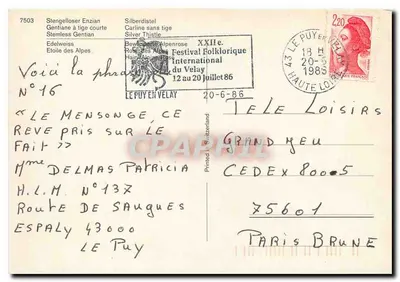 7503
Stengelloser Enzian
Gentiane à tige courte
Stemless Gentian
Edelweiss
Etoile des Alpes
Silberdistel
Carline sans tige
Silver Thistle
Alpenrose
Rose des Alpes
XXIIe.
Festival Folklorique
International
du Velay
12 au 20 juillet 86
LE PUY EN VELAY
20-6-86
43 LE PUY EN VELAY
18 H
20-6
1986
HAUTE LOIRE
2,20
Voici la phrase
N° 16
"LE MENSONGE, CE
REVE PRIS SUR LE
FAIT"
Mme DELMAS PATRICIA
H.L.M N° 137
ROUTE DE SAUGUES
ESPALY 43000
LE PUY
Printed in Switzerland
CPARAMA
TELE LOISIRS
GRAND JEU
CEDEX 80005
75601
PARIS BRUNE